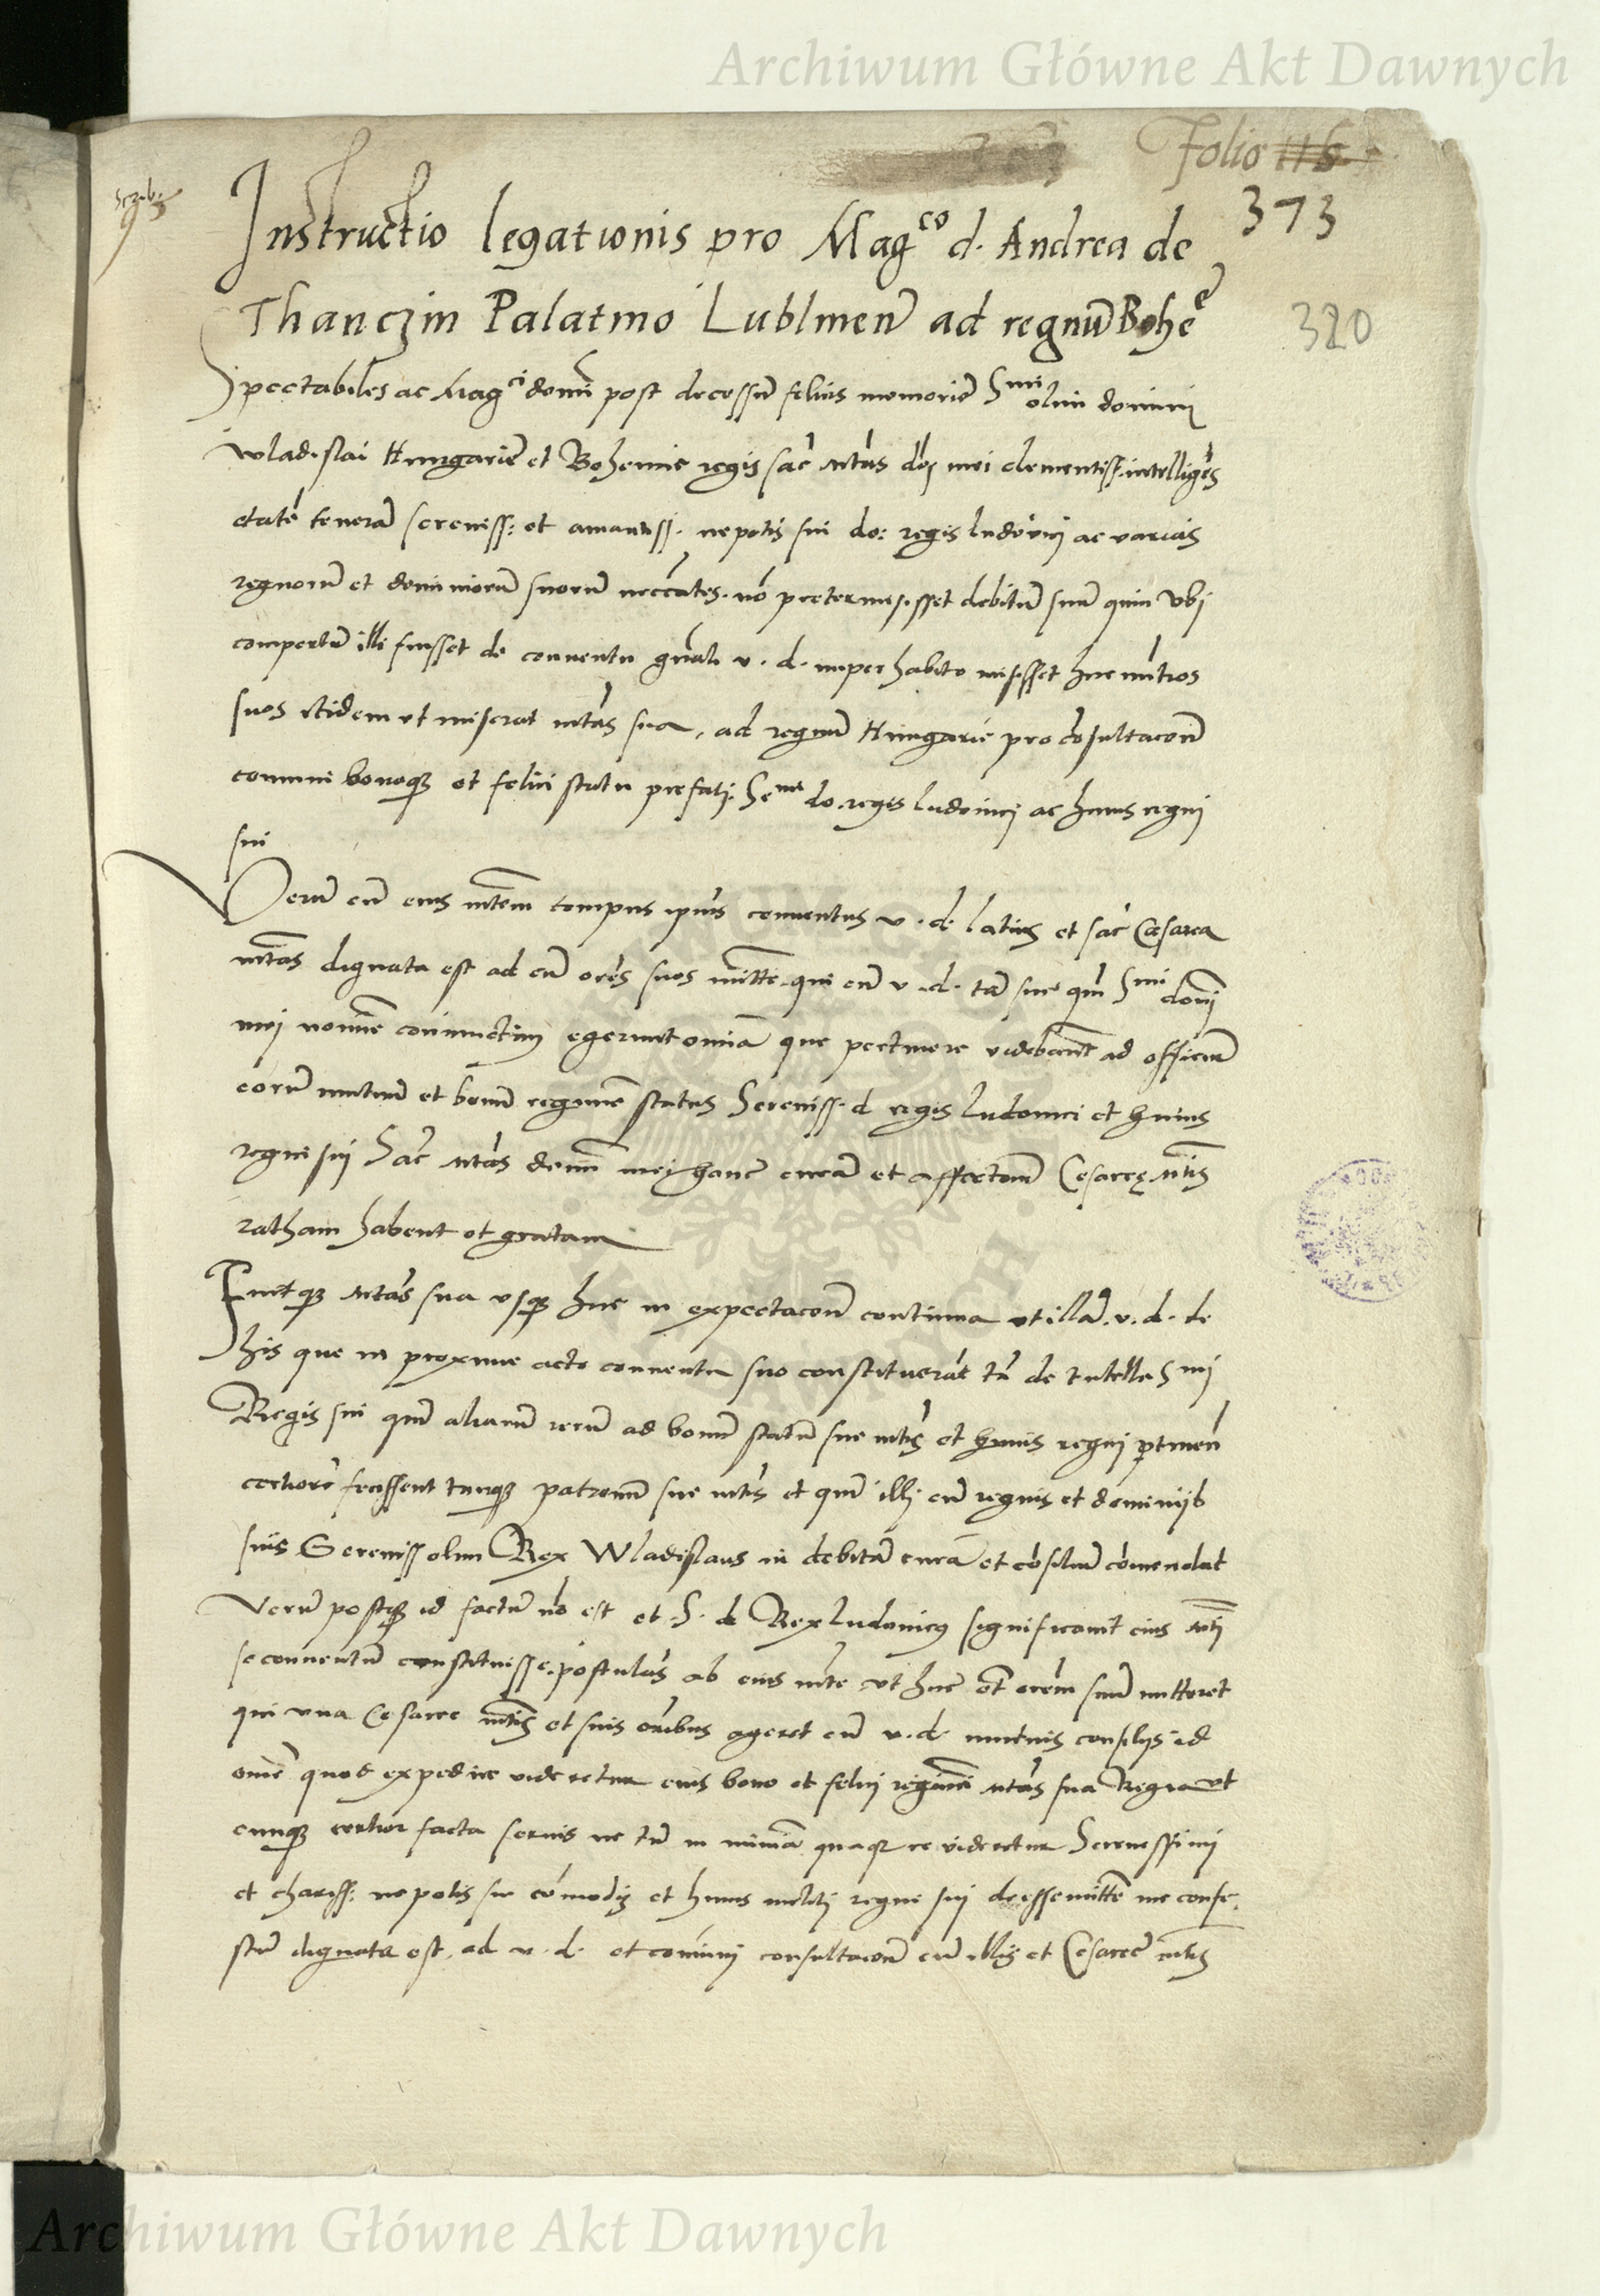 Archiwum Główne Akt Dawnych
Folio 116
373
320
Instructio legationis pro Mag^co d. Andrea de
Thanczin Palatino Lublinen̄ ad regnū Bohē
Spectabiles ac Mag^ci domī post decessū felicis memorie S^mi olim domini
Wladislai Hungarie et Bohemie regis sac̄ mtās dōi mei clementiss. intelligēs
etatē tenerā sereniss: et amantiss. nepotis sui do: regis ludovici ac varias
regnorū et dominiorū suorū neccātes. nō pretermisisset debitū suū quin vbi
compertū illi fuisset de conventu gn̄ali v. d. nuper habito misisset huc nūtios
suos itidem vt miserat mtās sua, ad regnū Hungarie pro cōsultacōn̄
comuni bonoq₃ et felici statu prefati. Se^mi do. regis ludovici ac huius regni
sui
Verū cū eius mtem̄ tempus ipīus conventus v. d. latuis et sac̄ Cesarea
mtās dignata est ad eū orēs suos mittē. qui cū v. d. tā sue qm̄ S^mi domī
mei nomīe coniunctim egerunt omīa que pertinere videbānt ad officiū
eorū mutuū et bonū regimē status Sereniss. d regis ludovici et huius
regni sui Sac̄ mtās domī mei hanc curā et affectōm̄ Cesareę mtis
ratham habent et gratam
Fuitq₃ mtās sua vsq₃ huc in expectacōn̄ continua vt illā. v. d. de
his que in proxime acto conventu suo constituerāt tā de tutella S^mi
Regis sui qm̄ aliarū rerū ad bonū statū sue mtis et huius regni ptinen̄
certiorē fecissent tanq₃ patronū sue mtis et qm̄ illi cū regnis et dominijs
suis Sereniss olim Rex Wladislaus in debitā curā et cōsiliū cōmendat
Verū postq₃ id factū nō est et S. d. Rex ludovicus significavit eius mti
se conventū constituisse. postulās ab eius mte vt huc et̄ orēm suū mitteret
qui vna Cesaree mtis et suis orībus ageret cū v. d. mutuis consilijs id
omē quod expedire videretur eius bono et felici regimini mtās sua Regia vt
cunq₃ certior facta serius ne tn̄ in minīa quaq₃ re videretur Serenissimi
et chariss: nepotis sui cōmodis et huius incliti regni sui deesse mittē me confe.
stim dignata est. ad v. d. et comūni consultacōn̄ cū illis et Cesaree mtis
Archiwum Główne Akt Dawnych